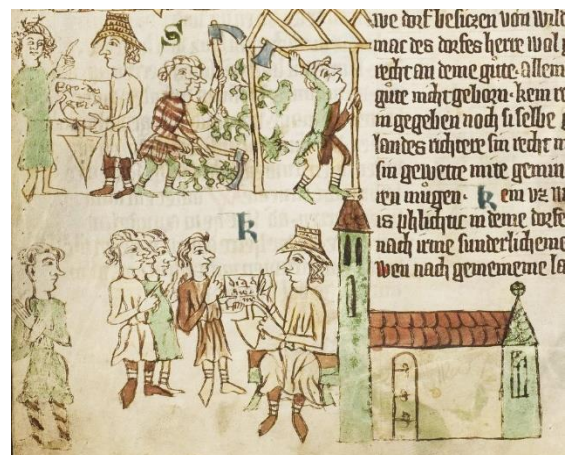 S
ego · de
gra
we dorf besiczen von wild
mac des dorfes herre wol
recht an deme gute · allem
gute nicht geborn · kein re
in gegeben noch si selbe
landes richtere sin recht
sin gewette mite
ren mugen · k ein vz w
is phlichtic in deme dorfe
nach irme sunderlicheme
wen nach gemeineme la
k